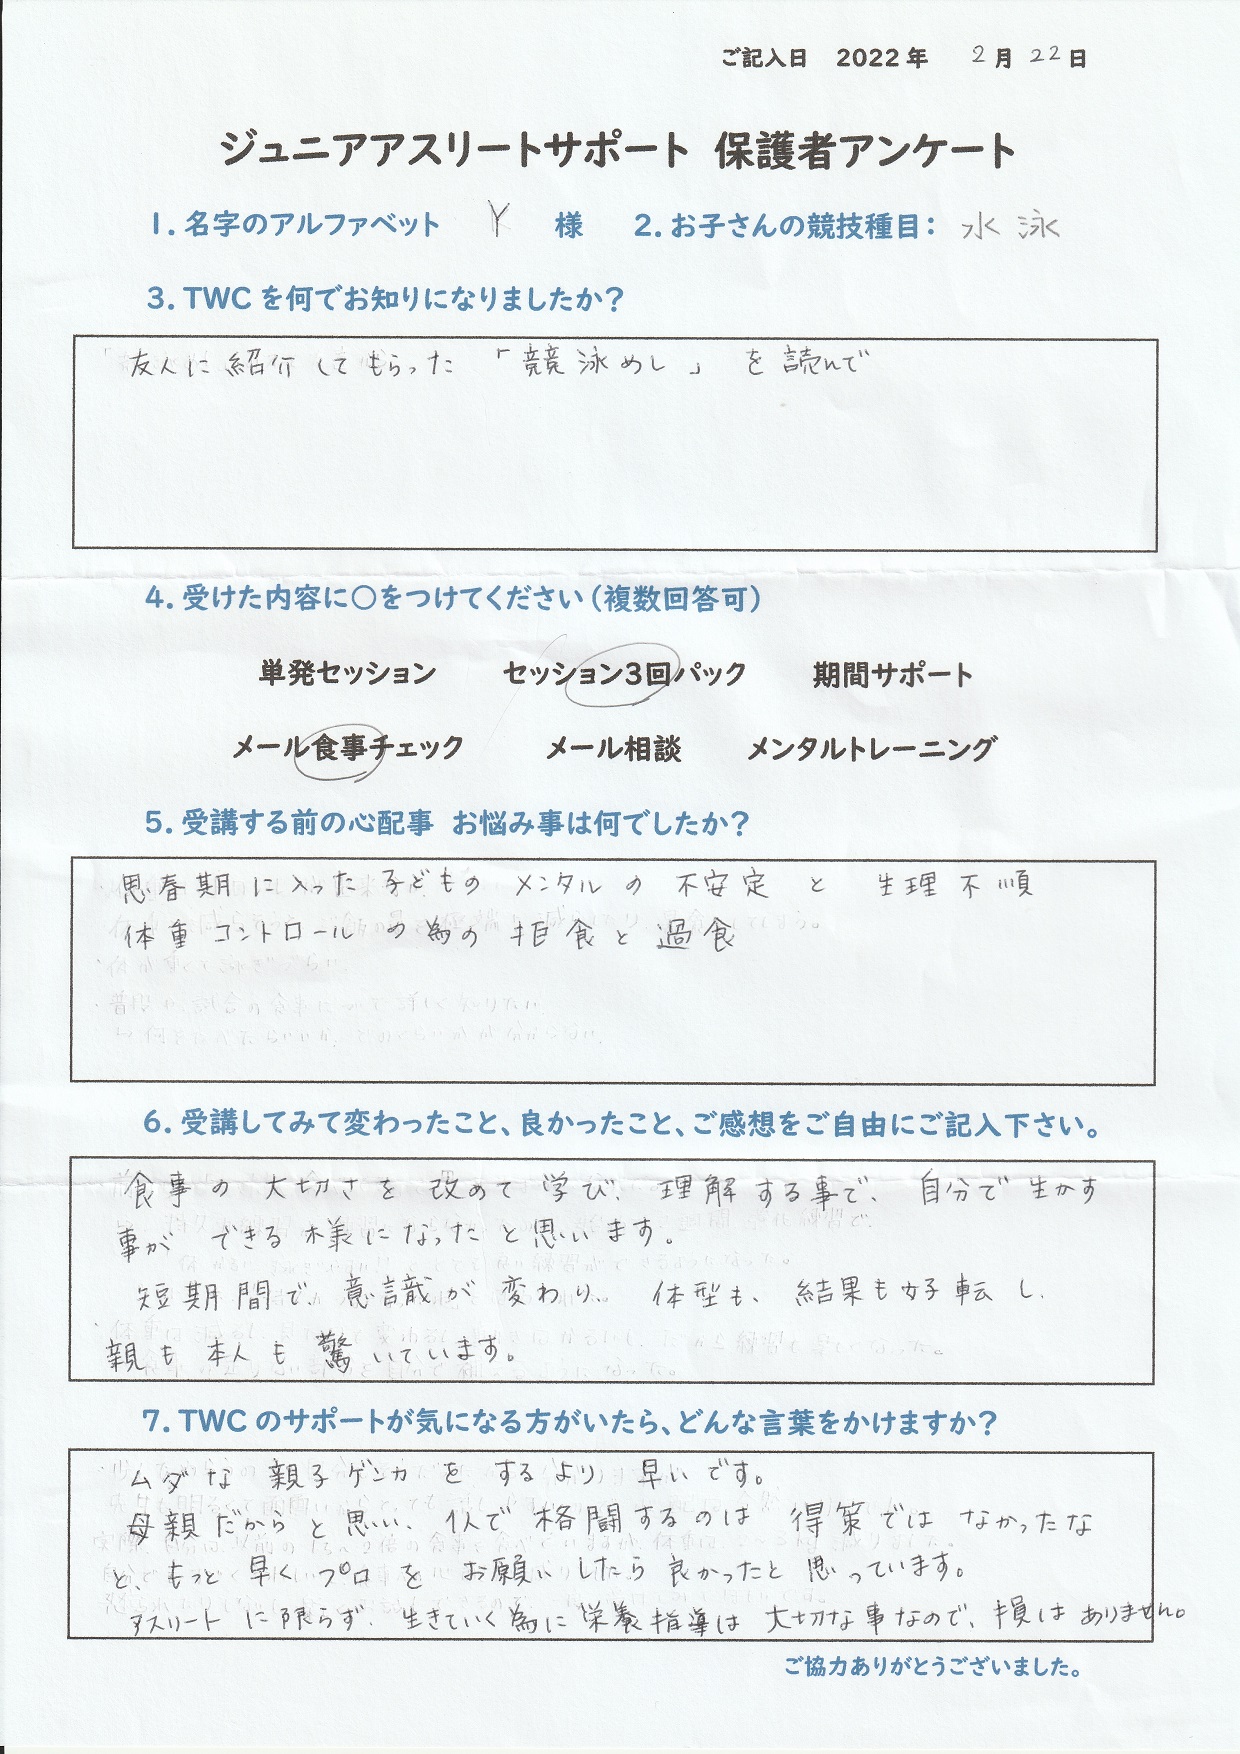 ご記入日 2022年 2月 22日
ジュニアアスリートサポート 保護者アンケート
1. 名字のアルファベット Y 様 2. お子さんの競技種目: 水泳
3. TWC を何でお知りになりましたか?
友人に紹介してもらった「競泳めし」を読んで
4. 受けた内容に○をつけてください(複数回答可)
単発セッション セッション3回パック 期間サポート
メール食事チェック メール相談 メンタルトレーニング
5. 受講する前の心配事 お悩み事は何でしたか?
思春期に入った子どものメンタルの不安定と生理不順
体重コントロールの為の拒食と過食
6. 受講してみて変わったこと、良かったこと、ご感想をご自由にご記入下さい。
食事の大切さを改めて学び、理解する事で、自分で生かす
事ができる様になったと思います。
短期間で、意識が変わり、体型も、結果も好転し、
親も本人も驚いています。
7. TWC のサポートが気になる方がいたら、どんな言葉をかけますか?
ムダな親子ゲンカをするより早いです。
母親だからと思い、1人で格闘するのは得策ではなかったな
と、もっと早くプロをお願いしたら良かったと思っています。
アスリートに限らず、生きていく為に栄養指導は大切な事なので、損はありません。
ご協力ありがとうございました。